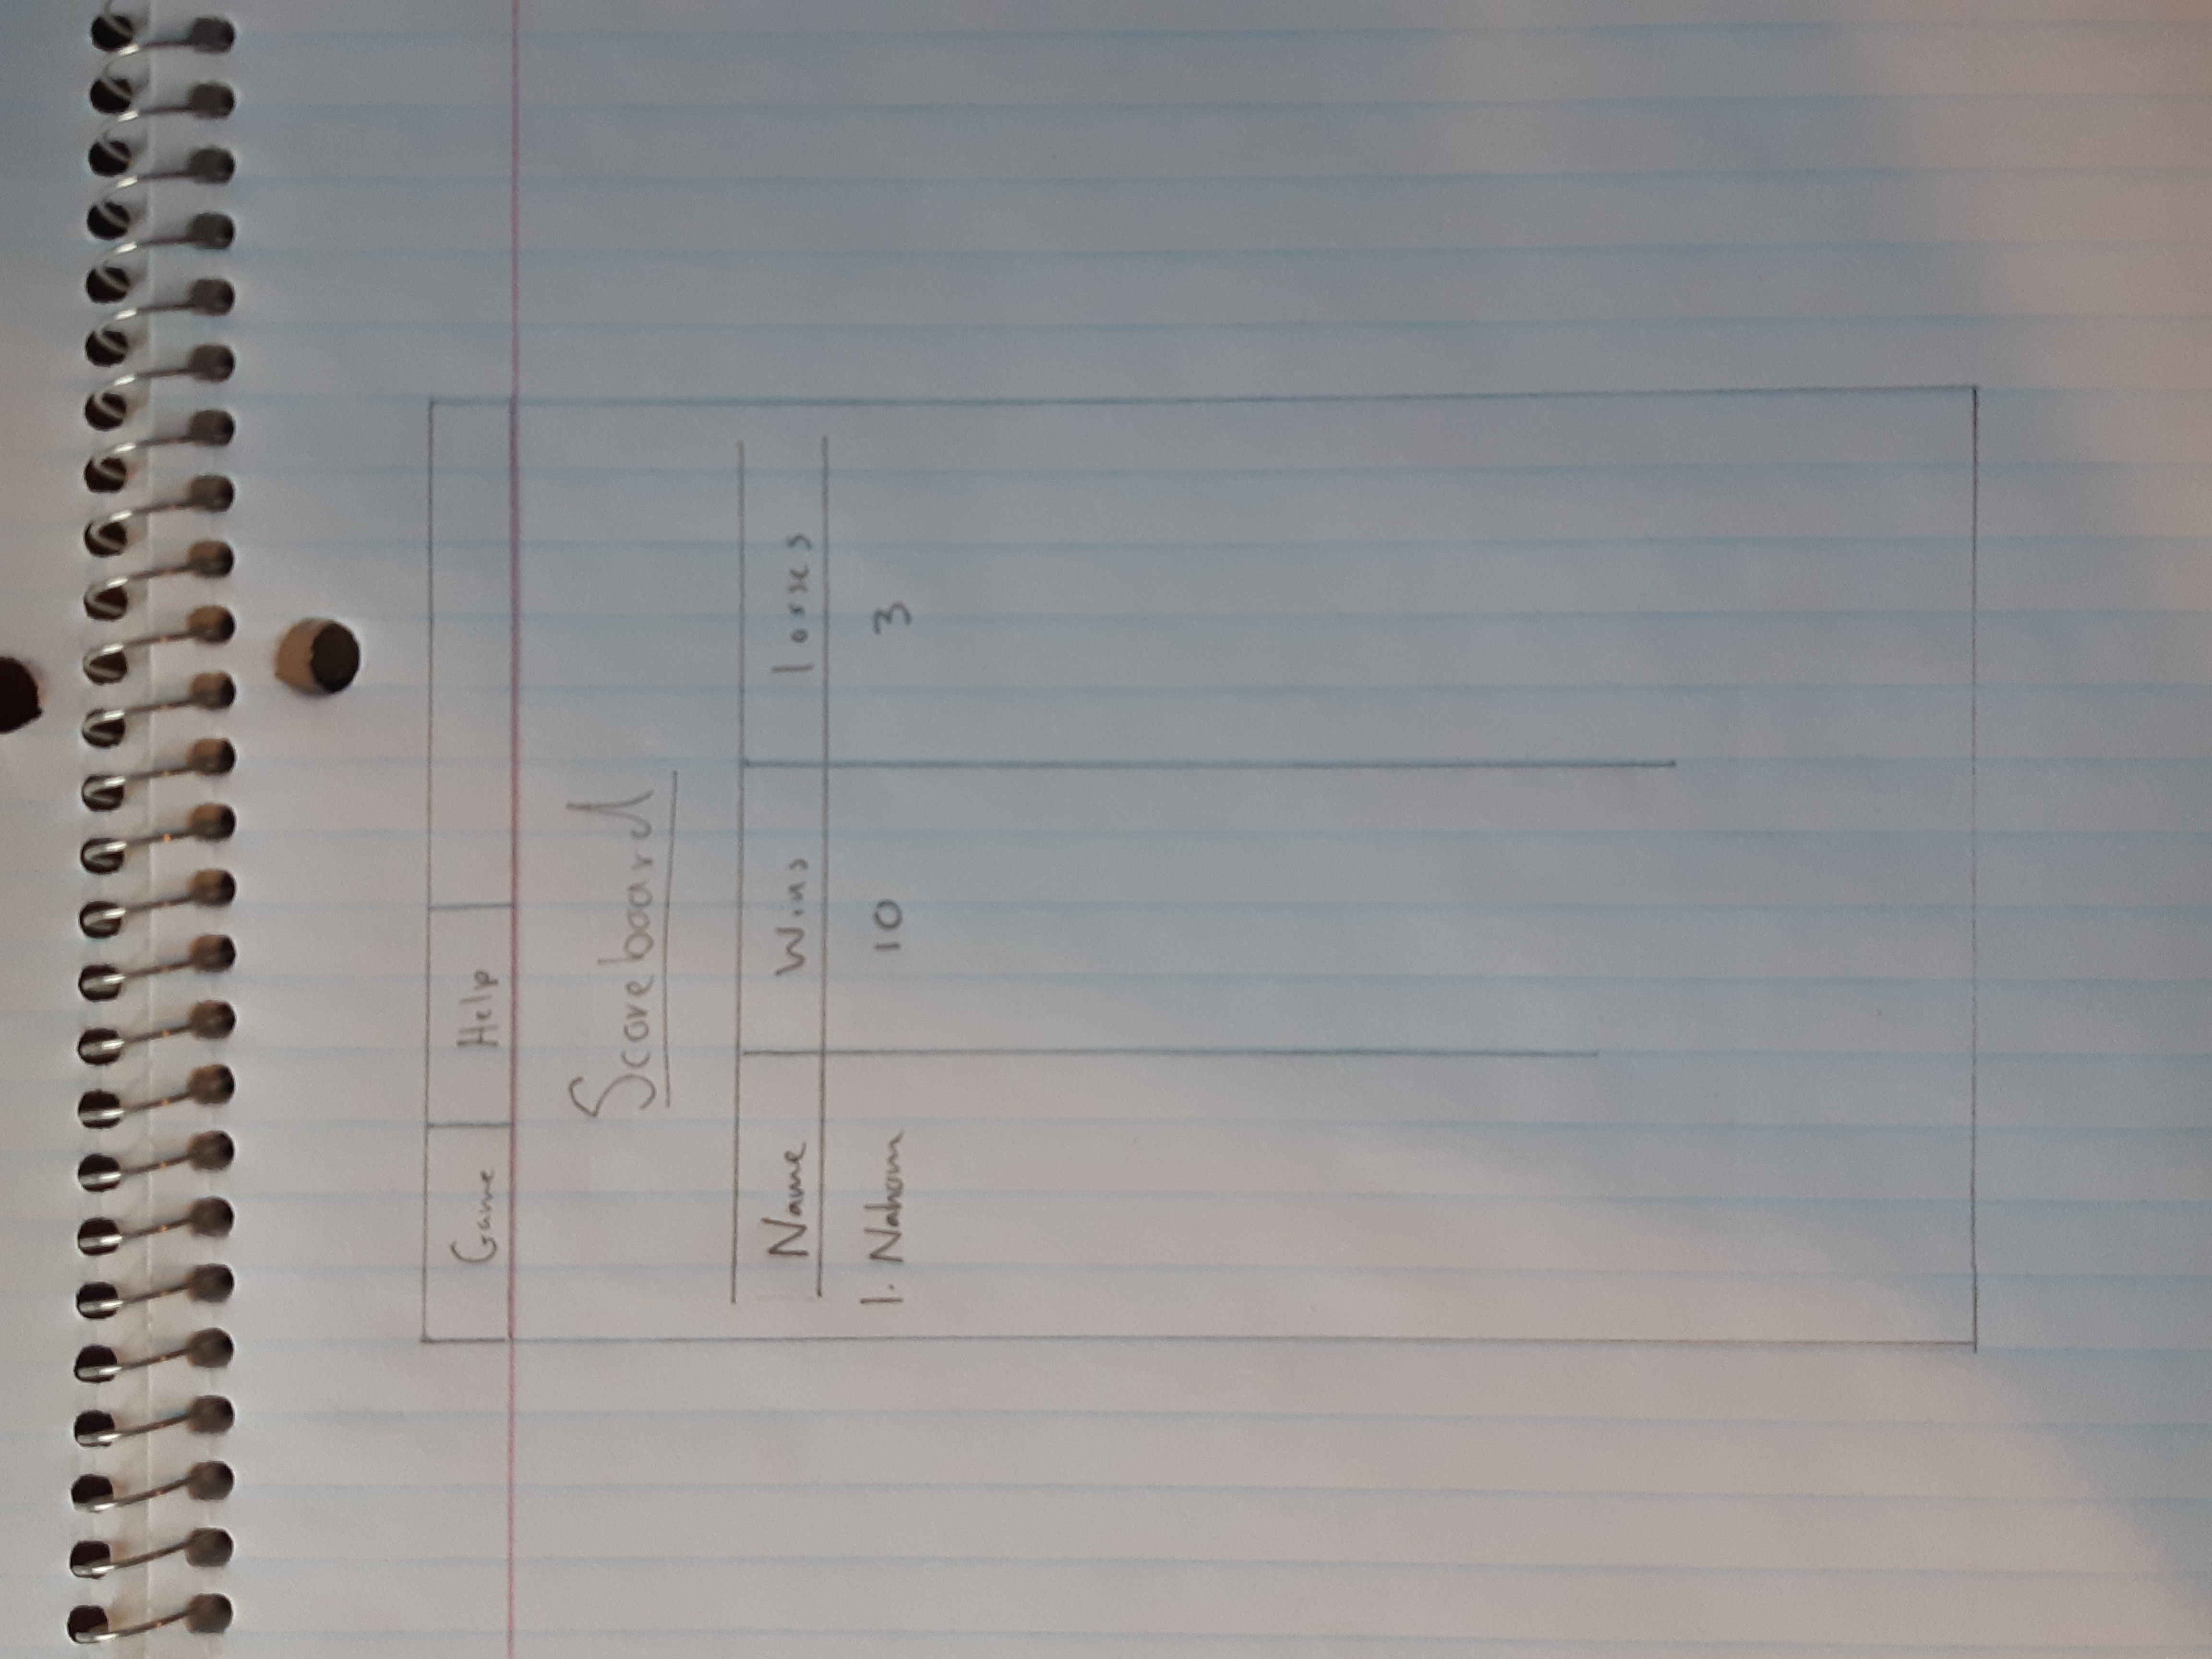 Game Help
Scoreboard
Name Wins losses
1. Nahom 10 3